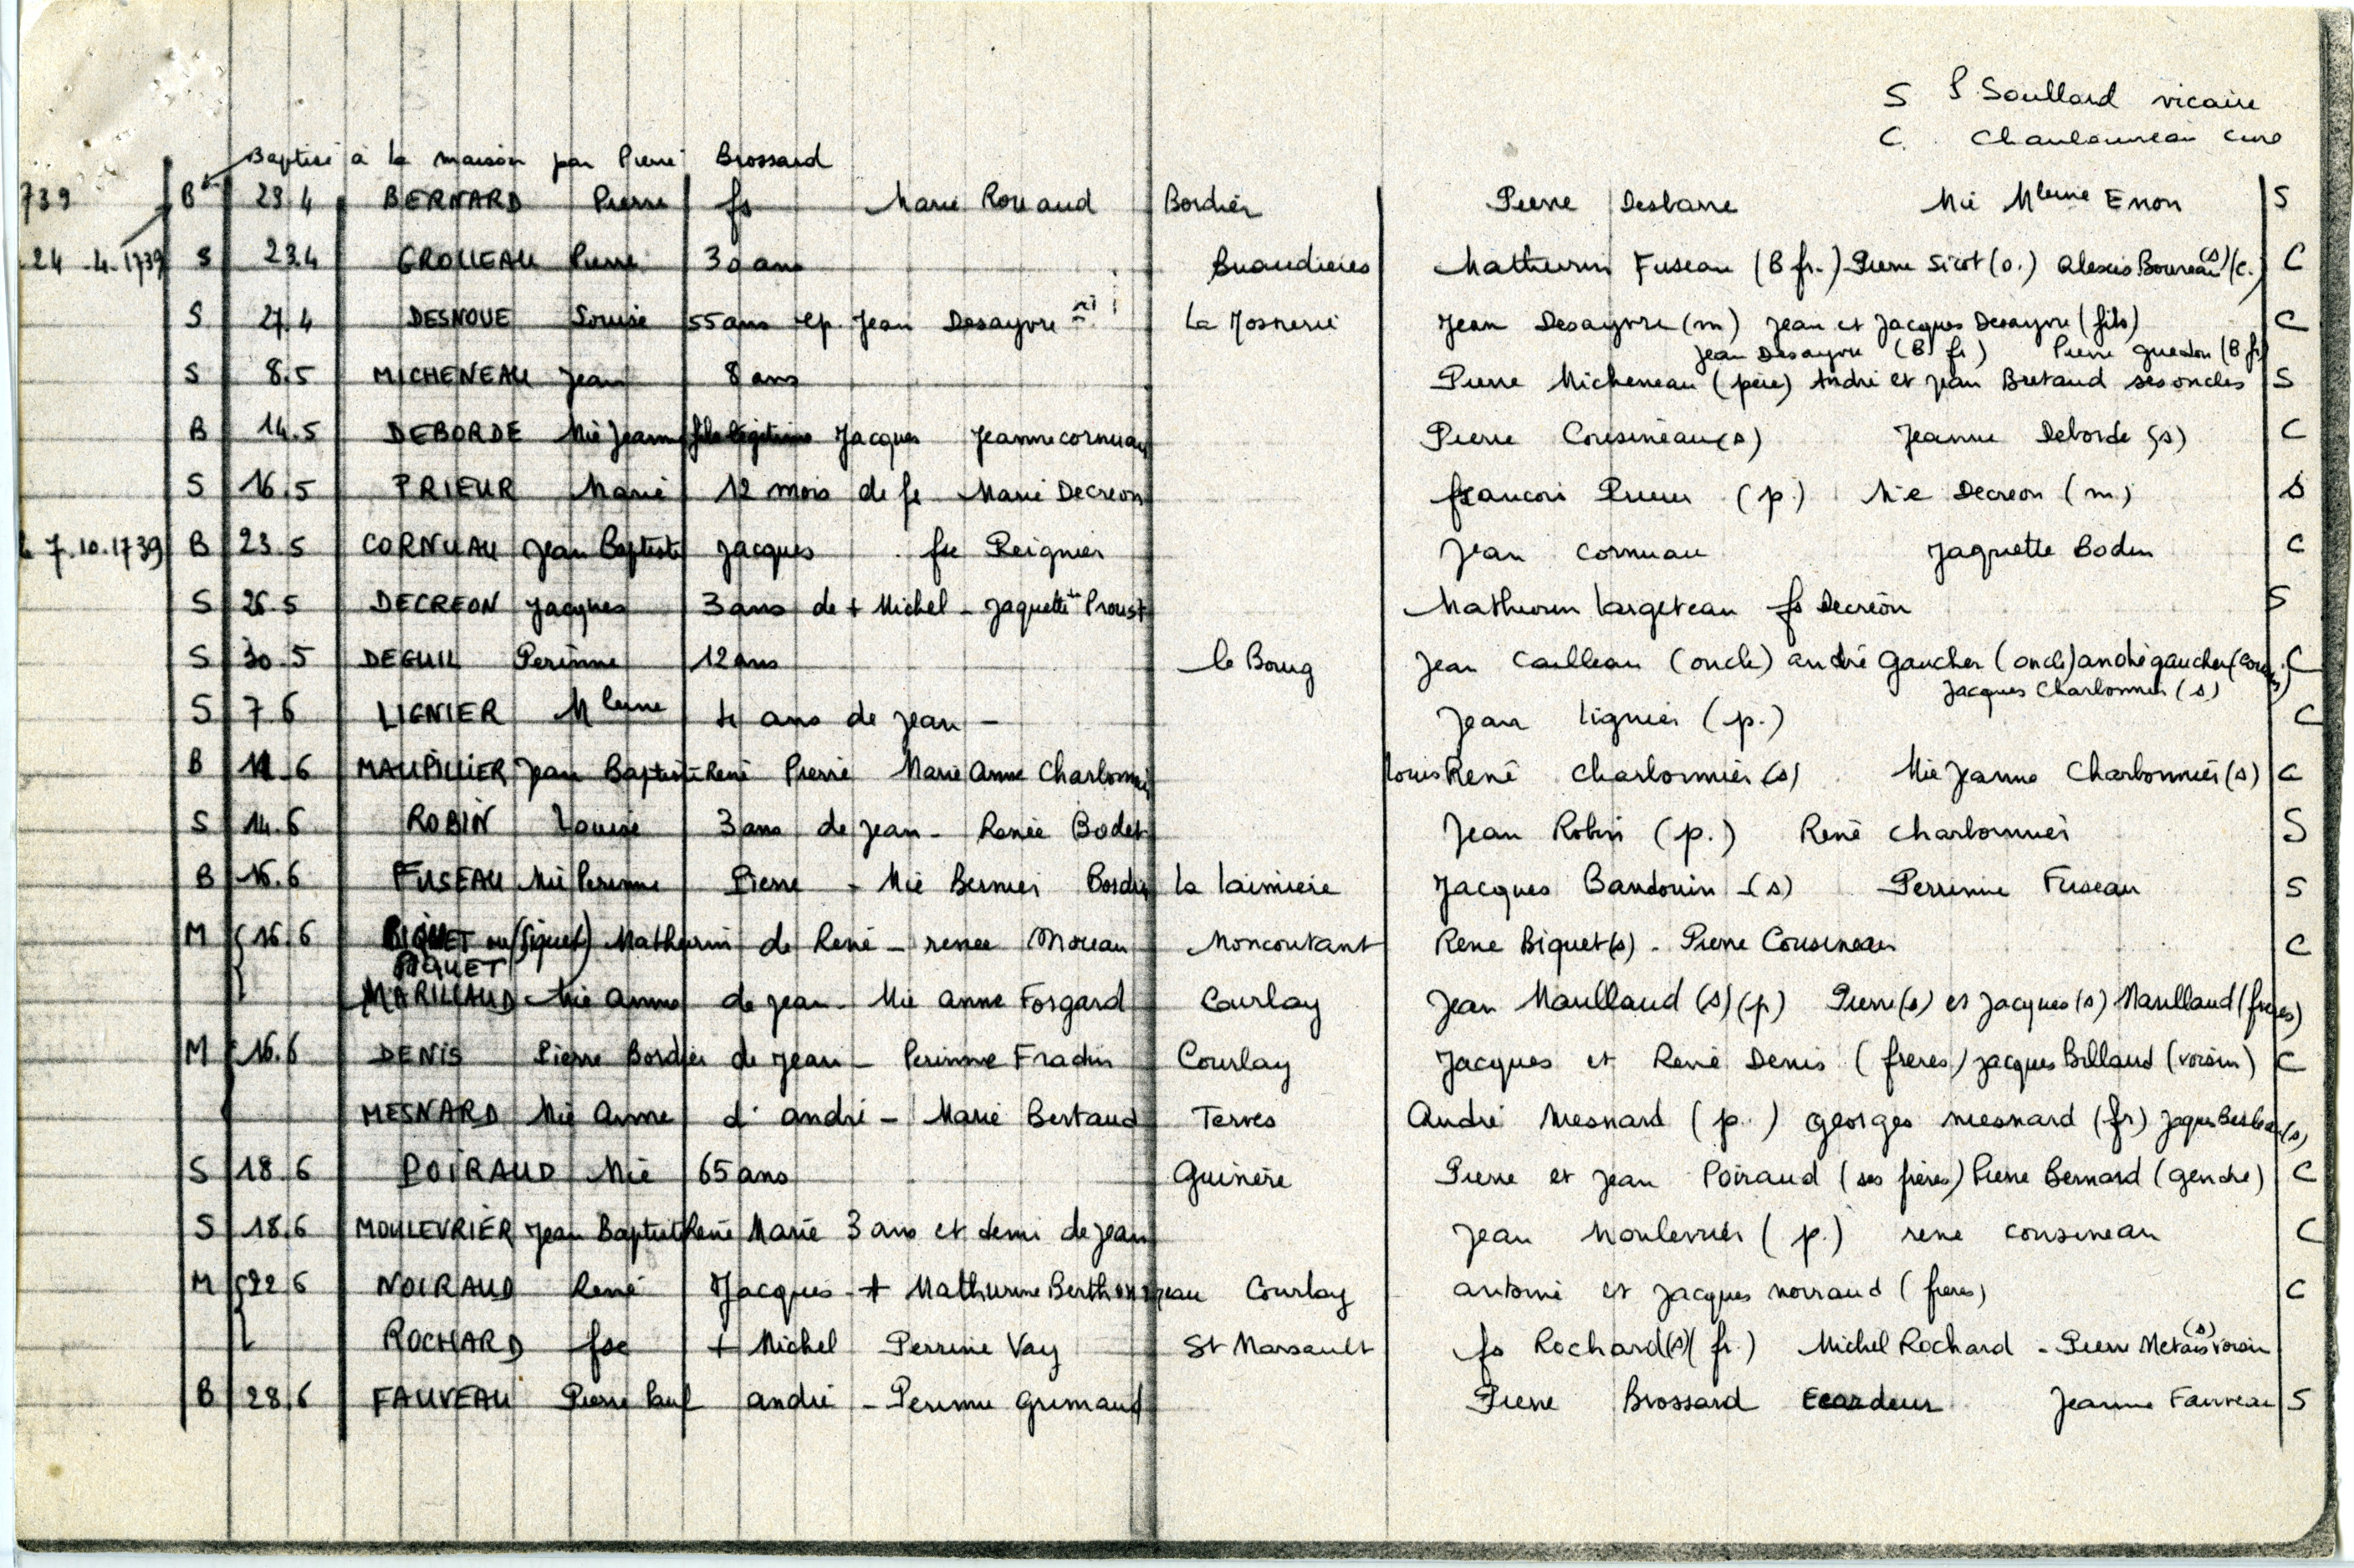 S P. Soullard vicaire
C. Chauloureau curé
Baptisé à la maison par Pierre Brossard
739 B 23.4 BERNARD Pierre fs Marie Rouaud Bordier Pierre Desbarre Mie Mleine Enon S
24 .4.1739 S 23.4 GROLLEAU Pierre 30 ans Buaudieres Mathurin Fuseau (B fr.) Pierre Sicot (o.) Alexis Boureau (s) (c.) C
S 27.4 DESNOUE Louise 55 ans ep. Jean Desayvre La Josnerie Jean Desayvre (m) Jean et Jacques Desayvre (fils) C
Jean Desayvre (B fr) Pierre Guedon (B fr)
S 8.5 MICHENEAU Jean 8 ans Pierre Micheneau (père) André et Jean Bretaud ses oncles S
B 14.5 DEBORDE Mie Jeanne Jacques Jeanne cornuau Pierre Cousineau (s) Jeanne Deborde (s) C
S 16.5 PRIEUR Marie 12 mois de fs Marie Decreon francois Prieur (p.) Mie Decreon (m) S
7.10.1739 B 23.5 CORNUAU Jean Baptiste Jacques fse Peignier Jean cornuau Jaquette Bodin C
S 26.5 DECREON Jacques 3 ans de + Michel - Jaquette Proust Mathurin largeteau fs Decreon S
S 30.5 DEGUIL Perinne 12 ans le Bourg Jean Cailleau (oncle) andré Gaucher (oncle) andré gaucher (cousin) C
Jacques Charbonnier (s)
S 7.6 LIGNIER Mleine 4 ans de Jean - Jean lignier (p.) C
B 11.6 MAUPILLIER Jean Baptiste René Pierre Marie Anne Charbonnier louis René Charbonnier (s) Mie Jeanne Charbonnier (s) C
S 14.6 ROBIN Louise 3 ans de Jean - Renée Bodet Jean Robin (p.) René Charbonnier S
B 16.6 FUSEAU Mie Perinne Pierre - Mie Bernier Bordier La laimiere Jacques Baudouin (s) Perrinne Fuseau S
M 16.6 BIQUET ou (Siquet) Mathurin de René - renee Moreau Moncoutant René Biquet (s) - Pierre Cousineau C
PIQUET
MARILLAUD Mie Anne de Jean - Mie Anne Forgard Courlay Jean Marillaud (s) (p) Pierre (s) et Jacques (s) Marillaud (freres)
M 16.6 DENIS Pierre Bordier de Jean - Perinne Fradin Courlay Jacques et René Denis (freres) Jacques Billaud (voisin) C
MESNARD Mie Anne d' andré - Marie Bertaud Terves André Mesnard (p.) Georges mesnard (fr)
S 18.6 POIRAUD Mie 65 ans Guinere Pierre et Jean Poiraud (ses freres) Pierre Bernard (gendre) C
S 18.6 MOULEVRIER Jean Baptiste René Marie 3 ans et demi de Jean Jean Moulevrier (p.) rené cousineau C
M 22.6 NOIRAUD René Jacques - + Mathurine Berthonneau Courlay antoine et Jacques noiraud (freres) C
ROCHARD fse + Michel Perrine Vay St Marsault fs Rochard (s) (fr.) Michel Rochard - Pierre Metais (s) voisin
B 28.6 FAUVEAU Pierre Paul andré - Perinne Grimaud Pierre Brossard Ecardeur Jeanne Fauveau S